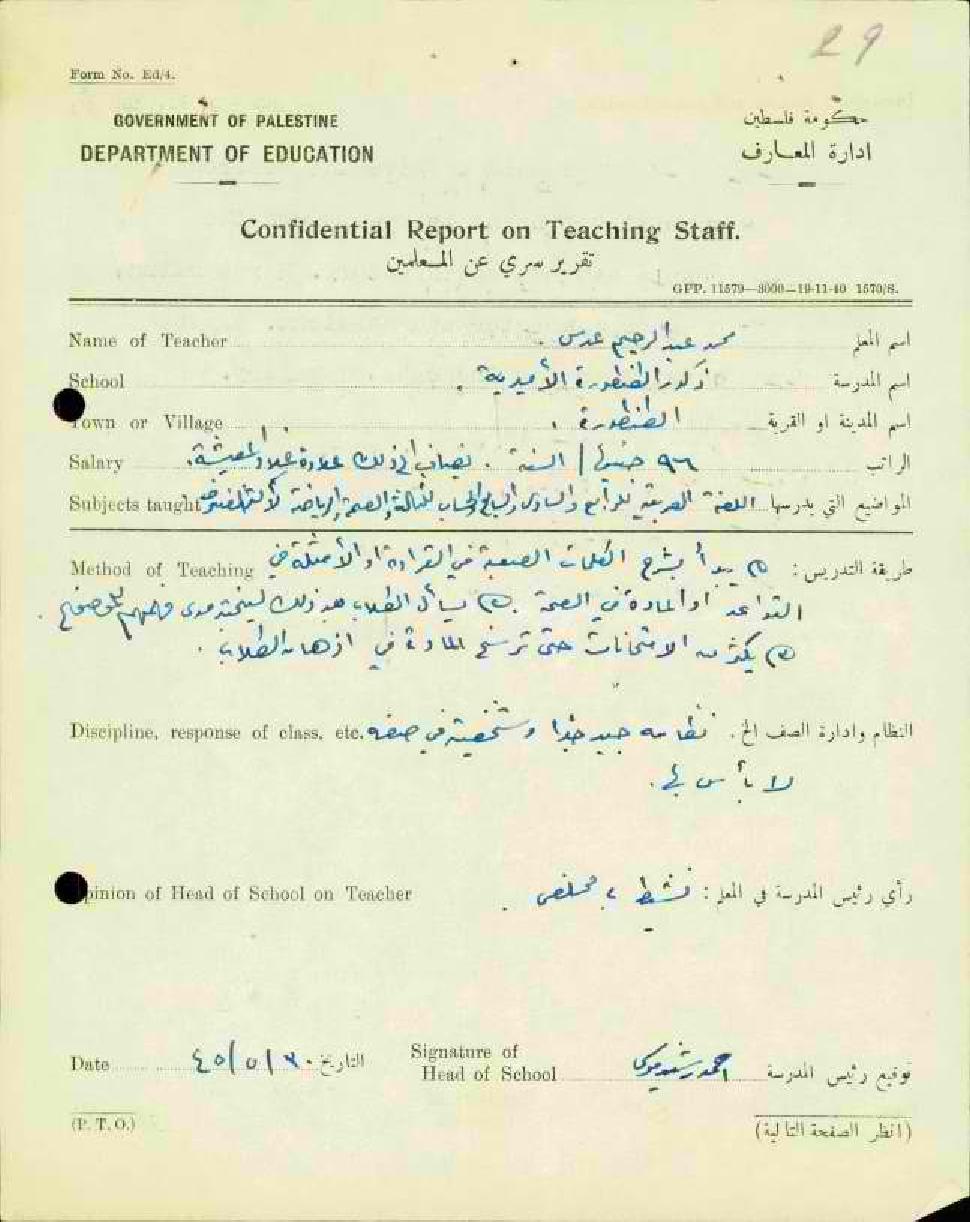 29
Form No. Ed/4.
GOVERNMENT OF PALESTINE
حكومة فلسطين
DEPARTMENT OF EDUCATION
ادارة المعارف
Confidential Report on Teaching Staff.
تقرير سري عن المعلمين
GPP. 11579—3000—19-11-40 1570/S.
Name of Teacher
اسم المعلم محمد عبدالرحيم عدس .
School
اسم المدرسة ذكور الطنطورة الأميرية .
Town or Village
اسم المدينة او القرية الطنطورة .
Salary
الراتب ٩٦ جنيها / السنة . يضاف الى ذلك علاوة غلاء المعيشة .
Subjects taught
المواضيع التي يدرسها اللغة العربية للرابع والسادس والسابع والحساب للثالث والصحة والرياضة
Method of Teaching
طريقة التدريس : (١) يبدأ بشرح الكلمات الصعبة في القراءة او الأمثلة في
القواعد او المادة في الصحة . (٢) يسأل الطلاب بعد ذلك ليتحقق مدى فهمهم
(٣) يكثر من الامتحانات حتى ترسخ المادة في اذهان الطلاب .
Discipline, response of class, etc.
النظام وادارة الصف الخ . نظامه جيد جدا وشخصيته في صفه
لا بأس بها .
Opinion of Head of School on Teacher
رأي رئيس المدرسة في المعلم : نشيط ، مخلص .
Date
التاريخ ٣٠/٥/٤٥
Signature of
Head of School
توقيع رئيس المدرسة احمد رشيد موسى
(P. T. O.)
(انظر الصفحة التالية)